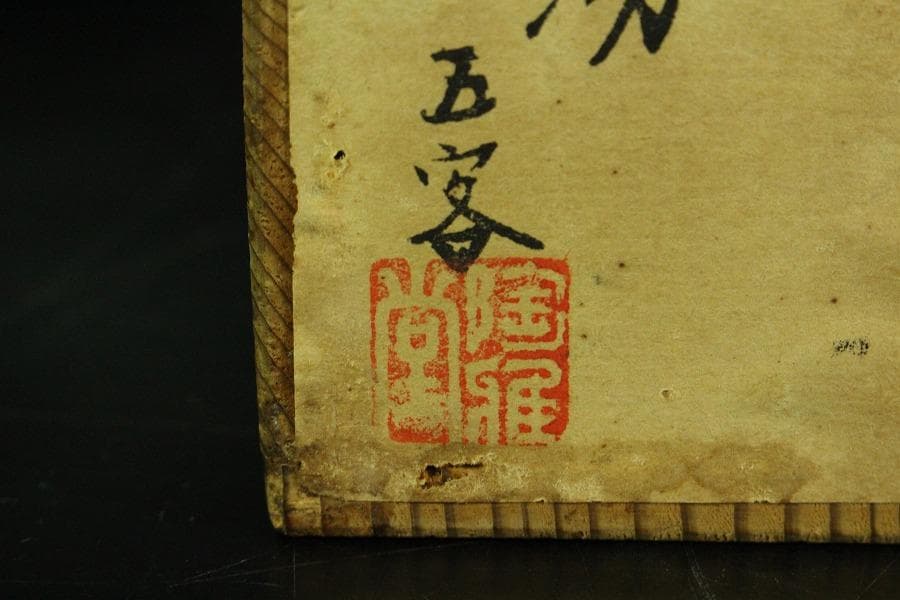 五客
陶雅堂